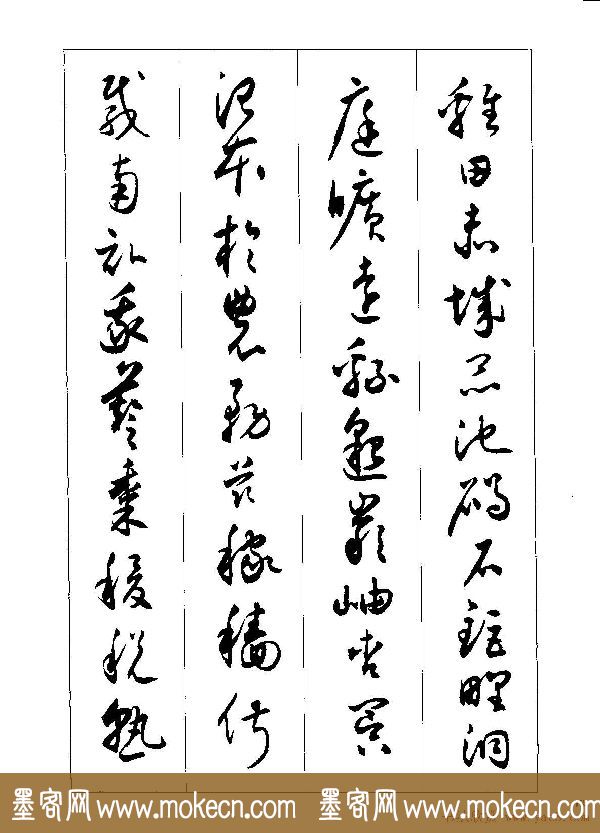 雞田赤城昆池碣石鉅野洞
庭曠遠緜邈巖岫杳冥
治本於農務茲稼穡俶
載南畝我藝黍稷稅熟
墨客网www.mokecn.com 墨客网www.mokecn.com